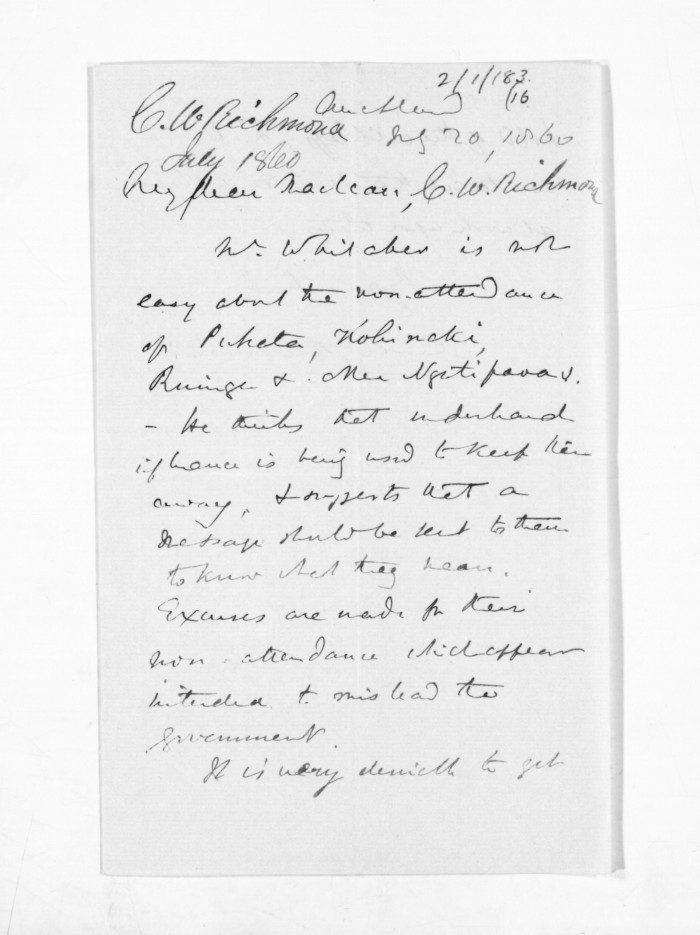 2/1/183.
/16
Auckland
C. W. Richmond July 20, 1860
July 1860
My dear Maclean, C. W. Richmond
Mr. Whitaker is not
easy about the non-attendance
of Puketa, Kohiroki,
& other Ngatipaoas.
- He thinks that underhand
influence is being used to keep them
away, & suggests that a
message should be sent to them
to know what they mean.
Excuses are made for their
non-attendance which appear
intended to mislead the
government.
It is very desirable to get